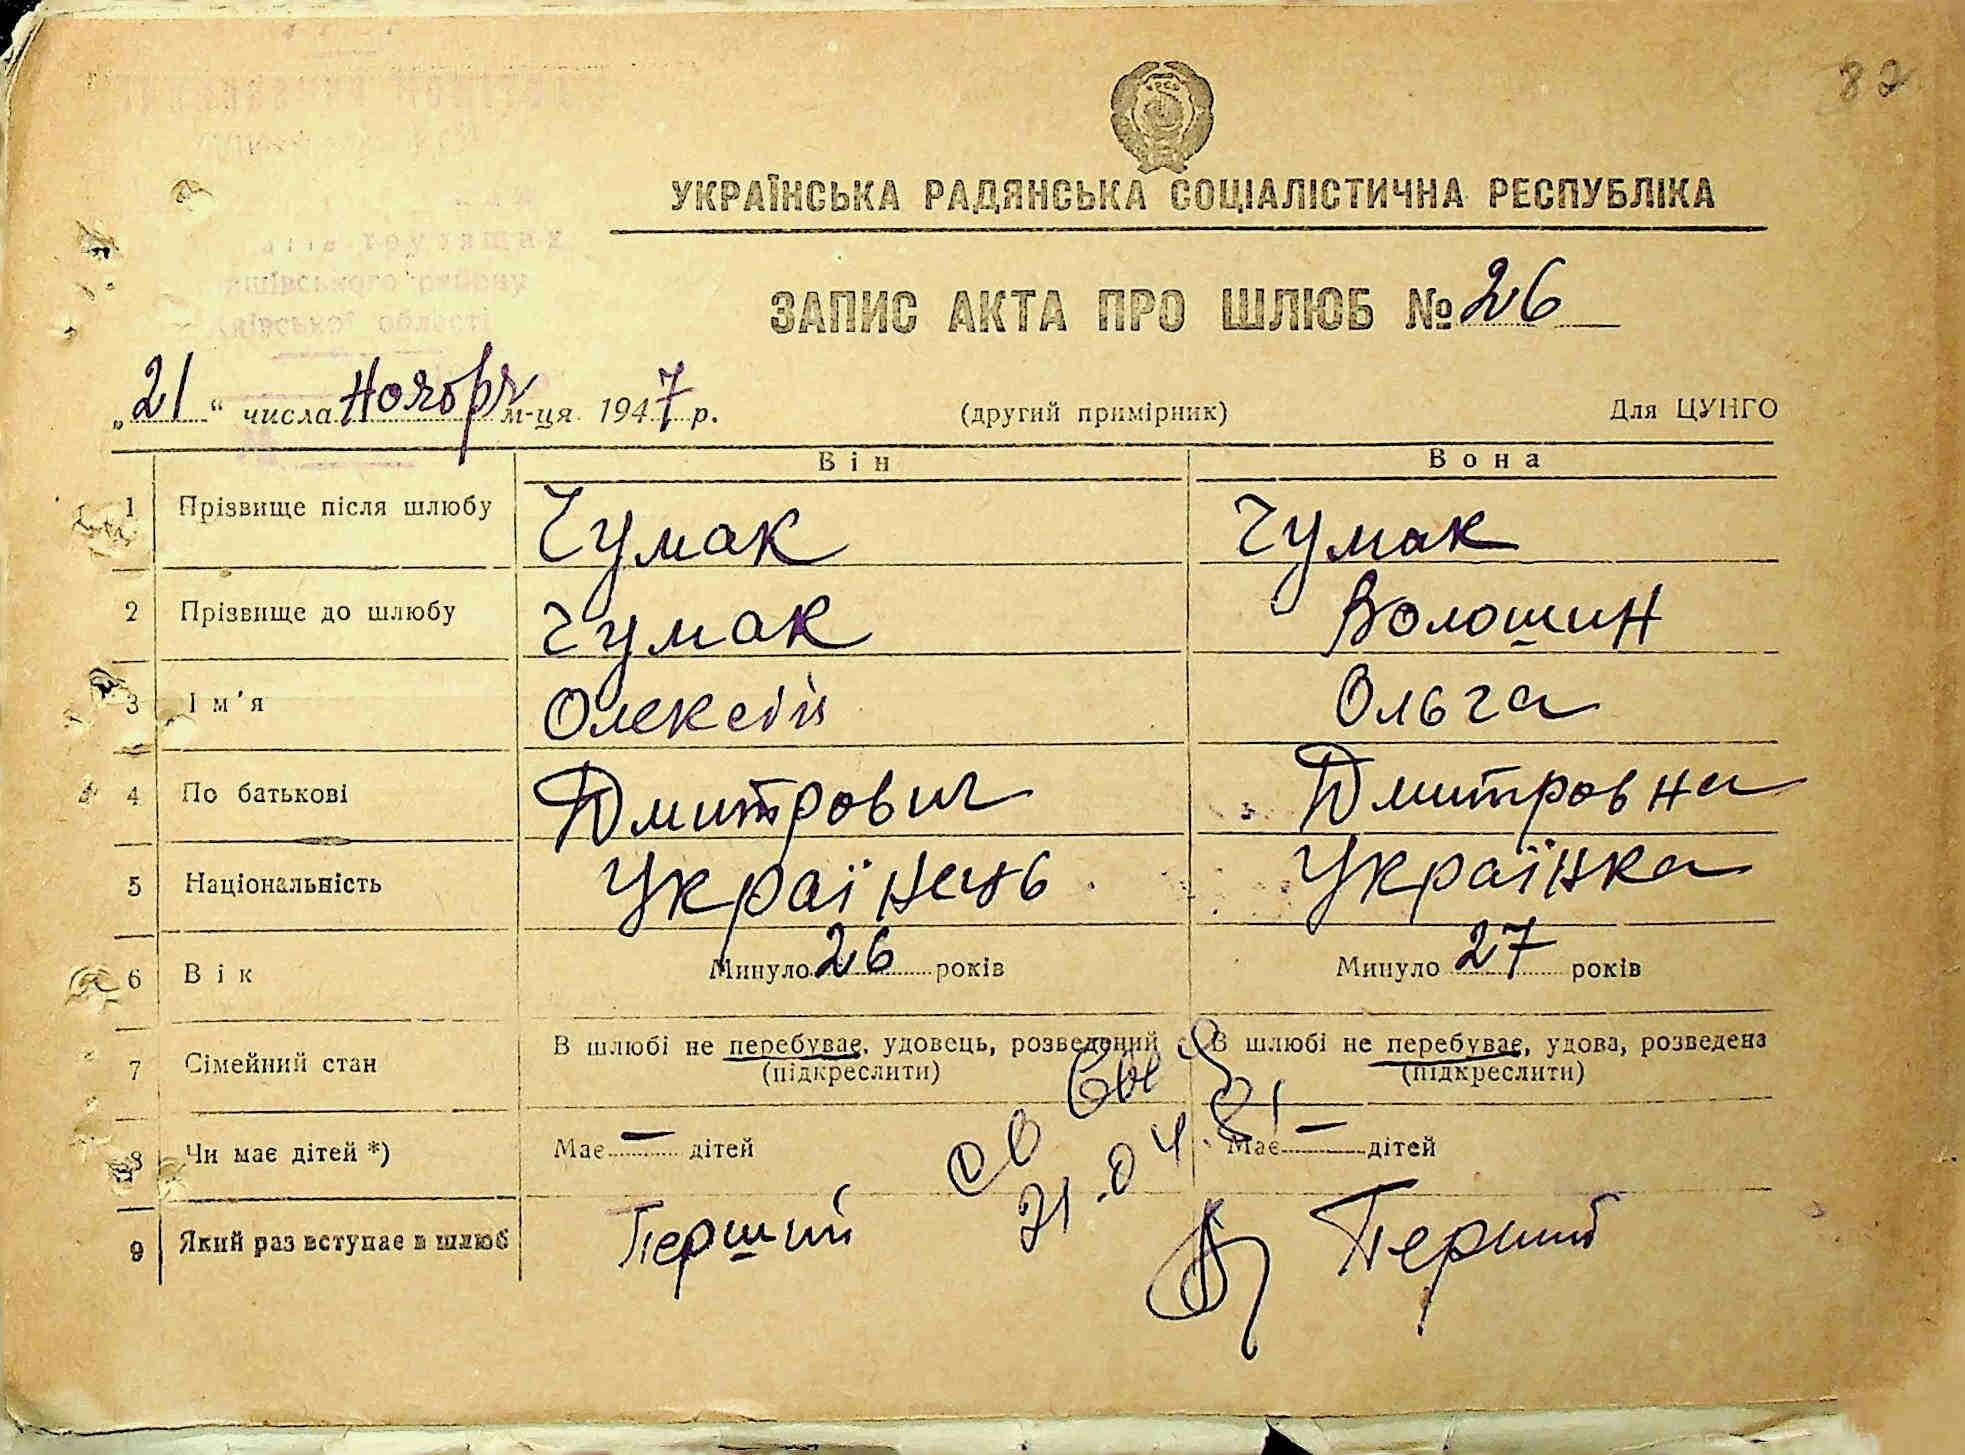 82
УКРАЇНСЬКА РАДЯНСЬКА СОЦІАЛІСТИЧНА РЕСПУБЛІКА
трудящих
району
Київської області
ЗАПИС АКТА ПРО ШЛЮБ № 26
„21“ числа Ноября м-ця 1947 р. (другий примірник) Для ЦУНГО
Він Вона
1 Прізвище після шлюбу Чумак Чумак
2 Прізвище до шлюбу Чумак Волошин
3 Ім'я Олексій Ольга
4 По батькові Дмитрович Дмитровна
5 Національність Українець Українка
6 Вік Минуло 26 років Минуло 27 років
7 Сімейний стан В шлюбі не перебуває, удовець, розведений В шлюбі не перебуває, удова, розведена
(підкреслити) (підкреслити)
8 Чи має дітей *) Має — дітей Має — дітей
21.04.
9 Який раз вступає в шлюб Перший Перший